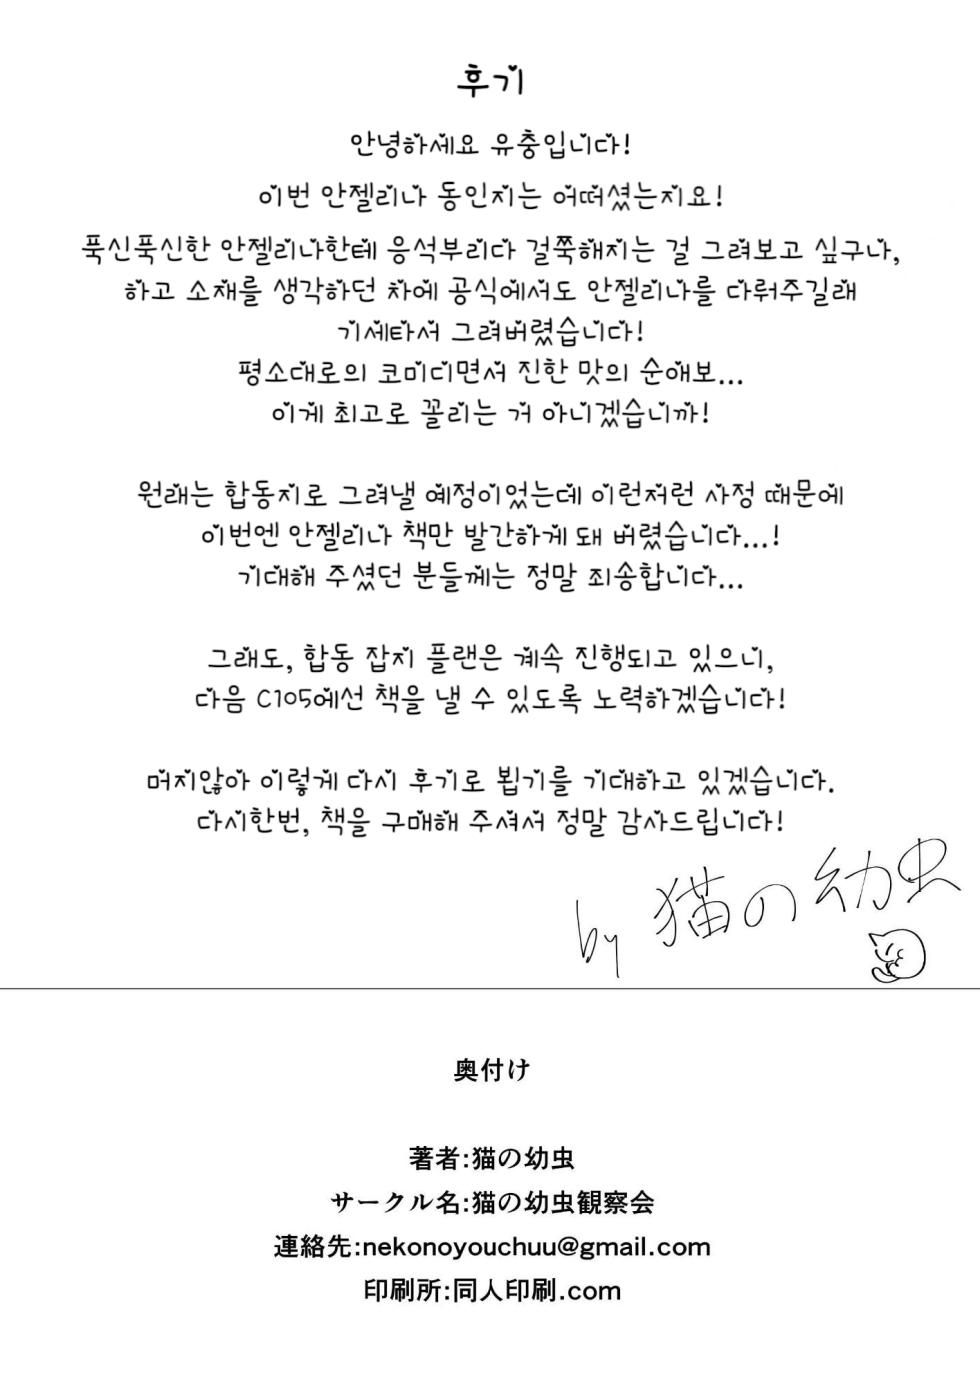 후기
안녕하세요 유충입니다!
이번 안젤리나 동인지는 어떠셨는지요!
푹신푹신한 안젤리나한테 응석부리다 걸쭉해지는 걸 그려보고 싶구나,
하고 소재를 생각하던 차에 공식에서도 안젤리나를 다뤄주길래
기세타서 그려버렸습니다!
평소대로의 코미디면서 진한 맛의 순애보...
이게 최고로 꼴리는 거 아니겠습니까!
원래는 합동지로 그려낼 예정이었는데 이런저런 사정 때문에
이번엔 안젤리나 책만 발간하게 돼 버렸습니다...!
기대해 주셨던 분들께는 정말 죄송합니다...
그래도, 합동 잡지 플랜은 계속 진행되고 있으니,
다음 C105에선 책을 낼 수 있도록 노력하겠습니다!
머지않아 이렇게 다시 후기로 뵙기를 기대하고 있겠습니다.
다시한번, 책을 구매해 주셔서 정말 감사드립니다!
by 猫の幼虫
奥付け
著者:猫の幼虫
サークル名:猫の幼虫観察会
連絡先:nekonoyouchuu@gmail.com
印刷所:同人印刷.com